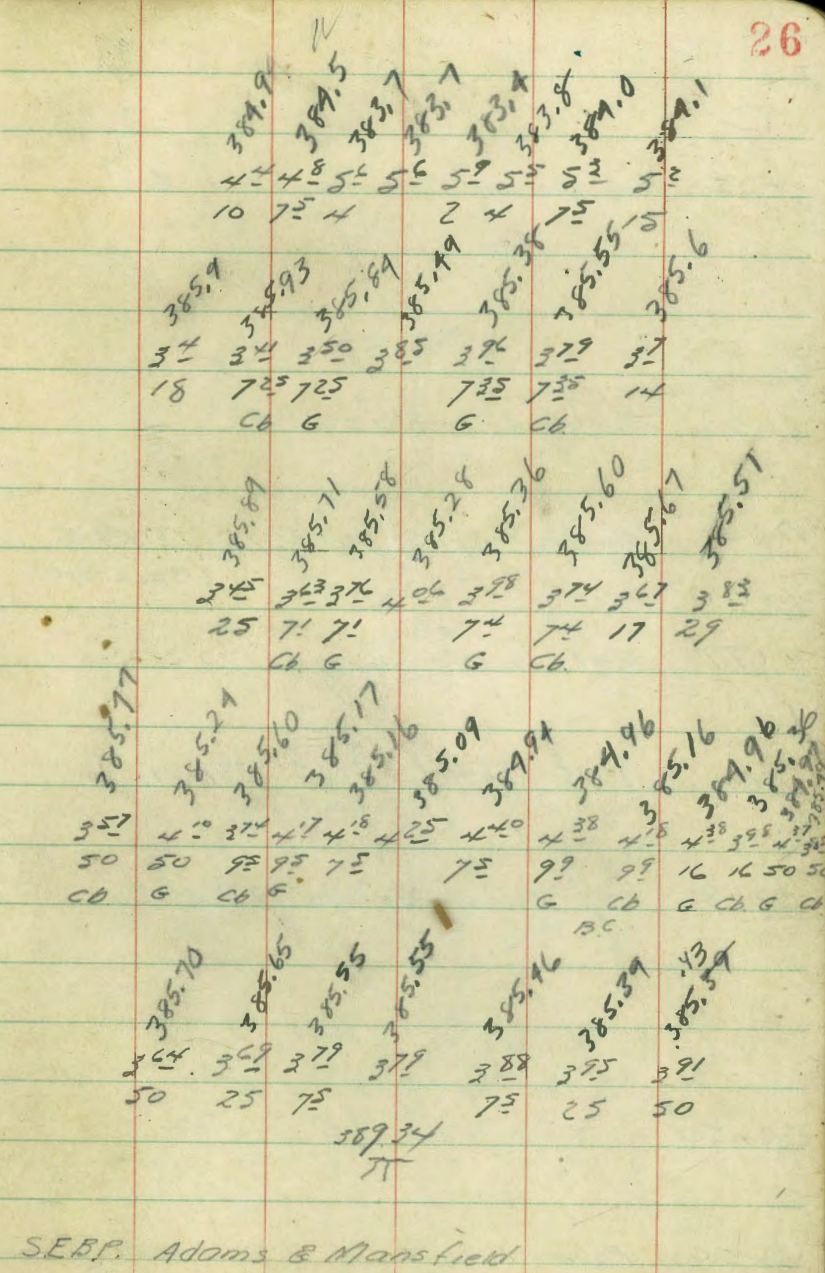 26
384.9 384.5 383.7 383.7 383.4 383.8 384.0 384.1
4 4 4 8 5 6 5 6 5 9 5 5 5 3 5 2
10 7 5 4 2 4 7 5 15
385.9 385.93 385.84 385.49 385.38 385.55 385.6
3 4 3 41 3 50 3 85 3 96 3 79 3 7
18 7 25 7 25 7 35 7 35 14
Cb G G Cb.
385.89 385.71 385.58 385.28 385.36 385.60 385.67 385.51
3 45 3 63 3 76 4 06 3 98 3 74 3 67 3 83
25 7 1 7 1 7 4 7 4 17 29
Cb G G Cb.
385.77 385.24 385.60 385.17 385.16 385.09 384.94 384.96 385.16 384.96 385.36 384.97
3 57 4 10 3 74 4 17 4 18 4 25 4 40 4 38 4 18 4 38 3 98 4 37
50 50 9 5 9 5 7 5 7 5 9 9 9 9 16 16 50 50
Cb G Cb G G Cb G Cb G Cb
B.C.
385.70 385.65 385.55 385.55 385.46 385.39 .43 385.39
3 64 3 69 3 79 3 79 3 88 3 95 3 91
50 25 7 5 7 5 25 50
389.34
π
S.E.B.P. Adams & Mansfield